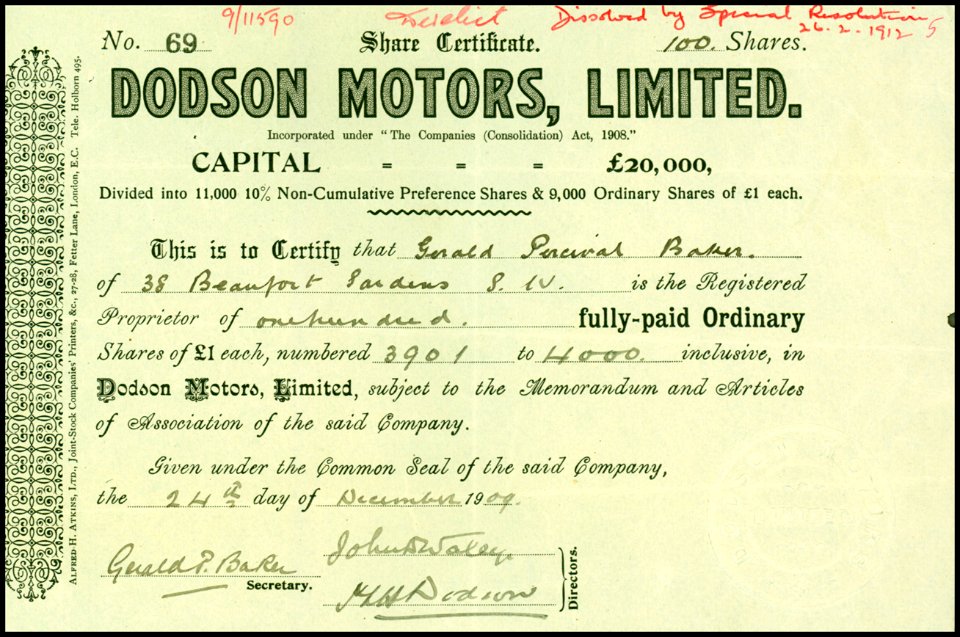 9/11590 Derelict Dissolved by Special Resolution
26.2.1912 5
No. 69 Share Certificate. 100. Shares.
DODSON MOTORS, LIMITED.
Incorporated under "The Companies (Consolidation) Act, 1908."
CAPITAL = = = £20,000,
Divided into 11,000 10% Non-Cumulative Preference Shares & 9,000 Ordinary Shares of £1 each.
This is to Certify that Gerald Percival Baker.
of 38 Beaufort Gardens S.W. is the Registered
Proprietor of one hundred. fully-paid Ordinary
Shares of £1 each, numbered 3901 to 4000. inclusive, in
Dodson Motors, Limited, subject to the Memorandum and Articles
of Association of the said Company.
Given under the Common Seal of the said Company,
the 24th day of December 1909.
Gerald P. Baker
Secretary.
John D Waley.
Dodson
Directors.
ALFRED H. ATKINS, LTD., Joint-Stock Companies' Printers, &c., 27-28, Fetter Lane, London, E.C. Tele. Holborn 495.